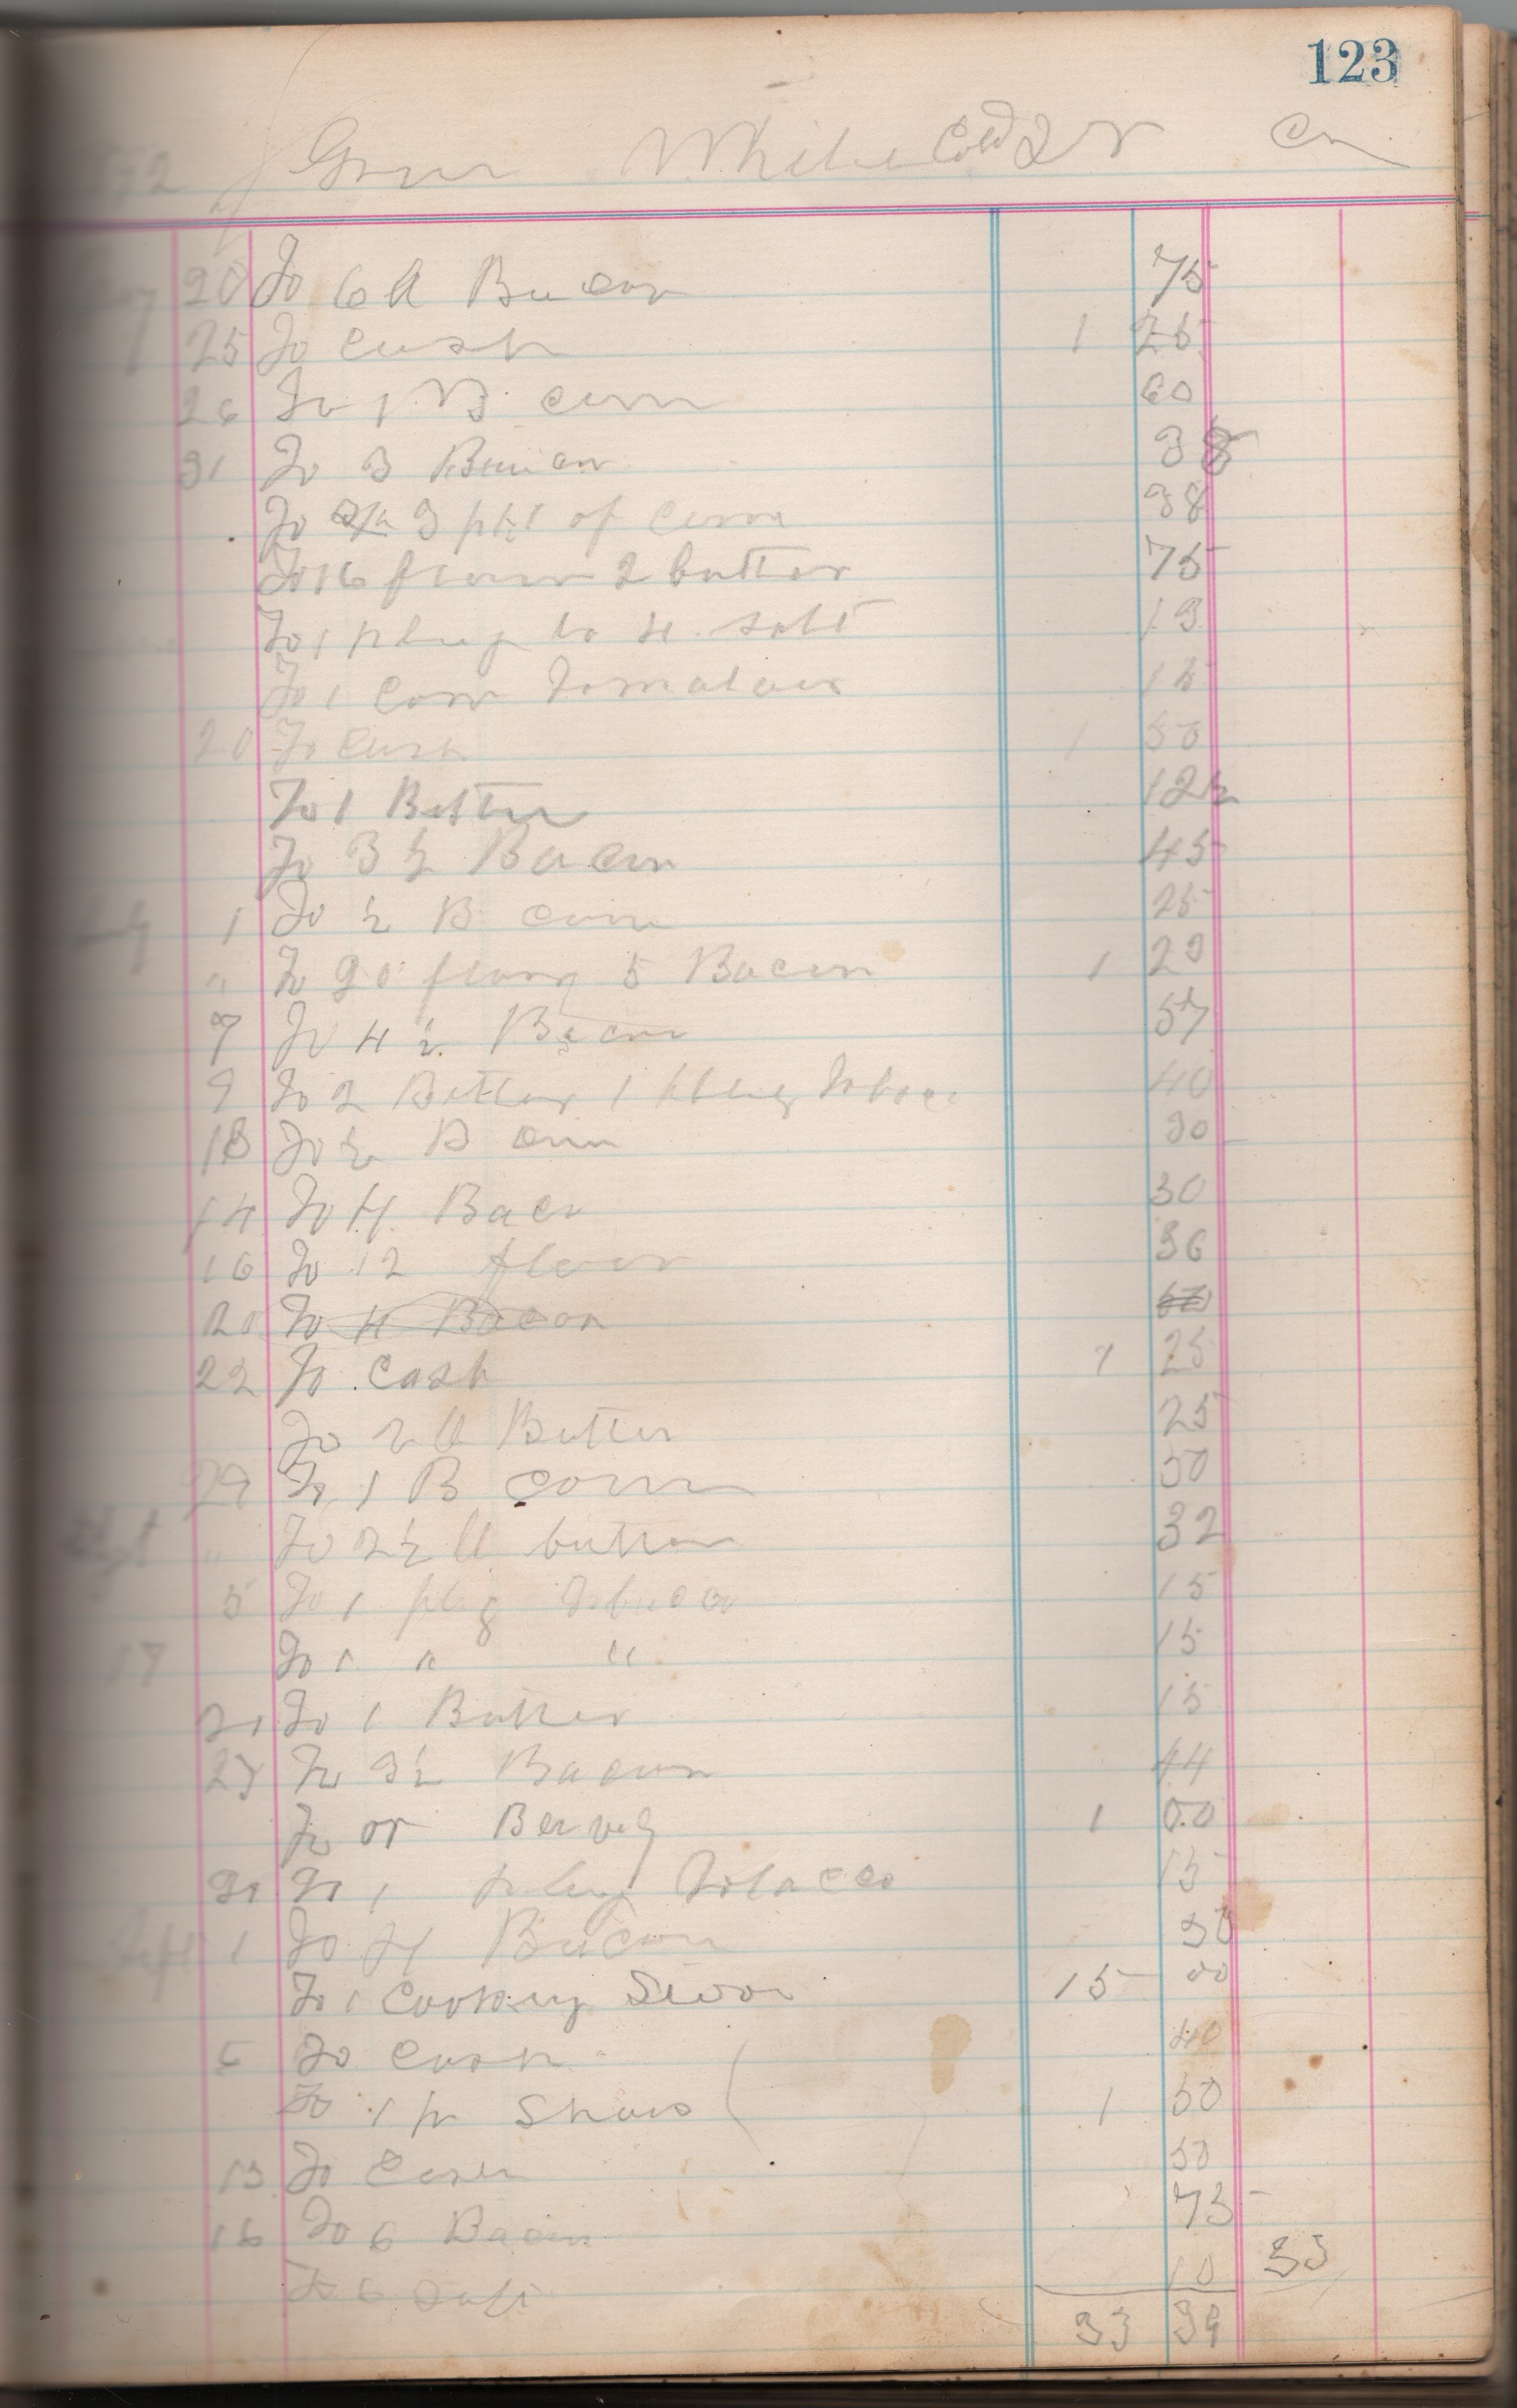 123
White Cold Dr Cr
20 To 6 ll Bacon 75
25 To Cash 1 25
26 To 1 B corn 60
31 To 3 Bacon 38
To 3 pks of Corn 38
To 16 flour 2 butter 75
To 1 plug to 4 salt 13
To 1 Can Tomatoes 15
20 To Cash 1 50
To 1 Butter 12½
To 3½ Bacon 45
July 1 To ½ B corn 25
" To 20 flour 5 Bacon 1 23
7 To 4½ Bacon 57
9 To 2 Butter 1 plug Tobac 40
13 To ½ B corn 30
14 To 4 Baco 50
16 To 12 flour 36
20 To 4 Bacon
22 To Cash 1 25
To 2 ll Butter 25
29 To 1 B corn 50
" To 2½ ll butter 32
5 To 1 plug Tobacco 15
17 To 1 " " 15
21 To 1 Butter 15
To 3½ Bacon 44
To or 1 00
31 To 1 plug Tobacco 15
Sept 1 To 4 Bacon 50
To 1 Cooking Stove 15 00
5 To Cash 40
To 1 pr Shoes 1 50
13 To Cash 50
16 To 6 Bacon 75
To 6 Salt 10 33
33 39